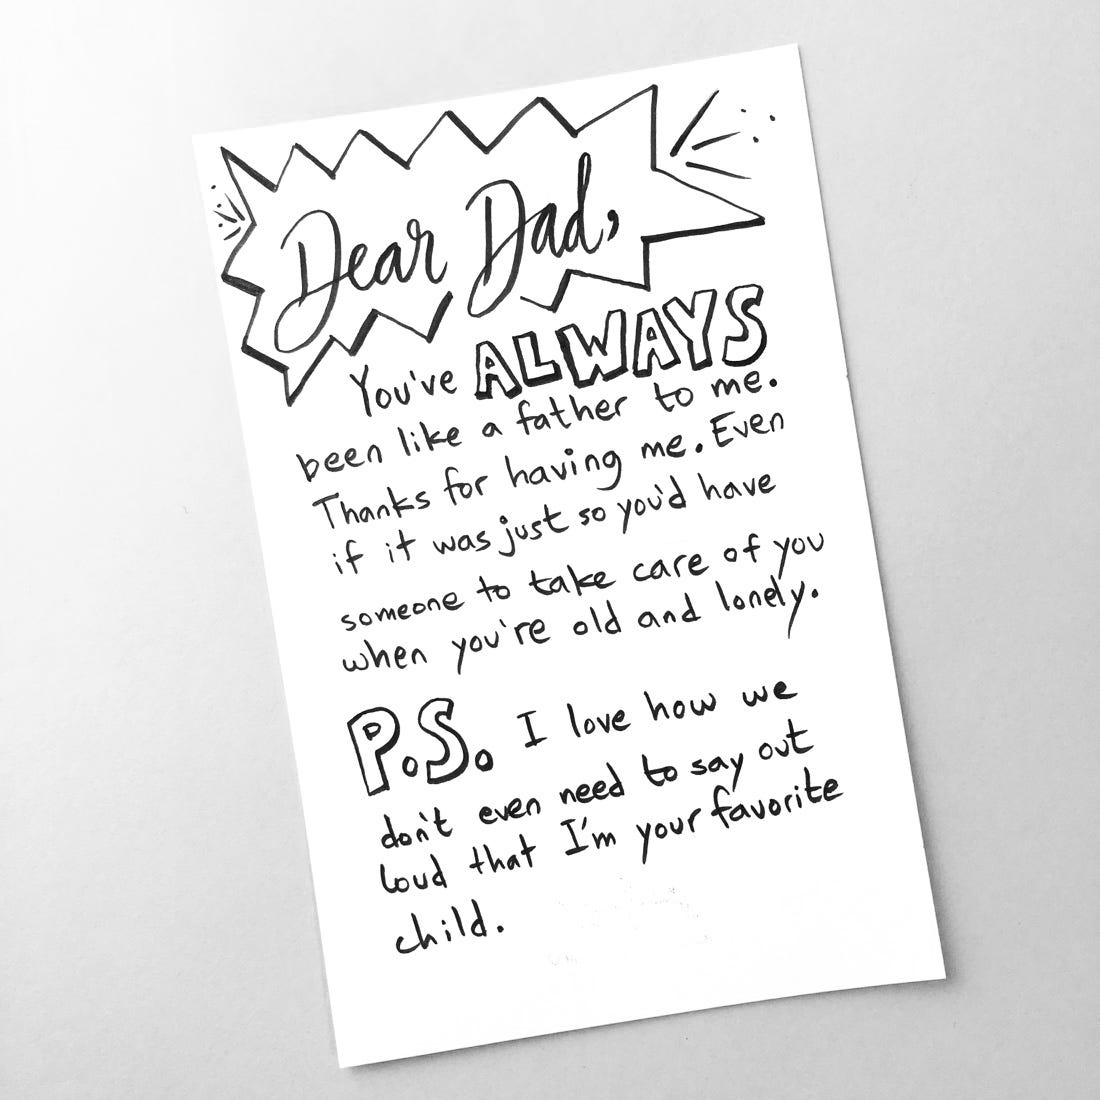 Dear Dad,
You've ALWAYS
been like a father to me.
Thanks for having me. Even
if it was just so you'd have
someone to take care of you
when you're old and lonely.
P.S. I love how we
don't even need to say out
loud that I'm your favorite
child.